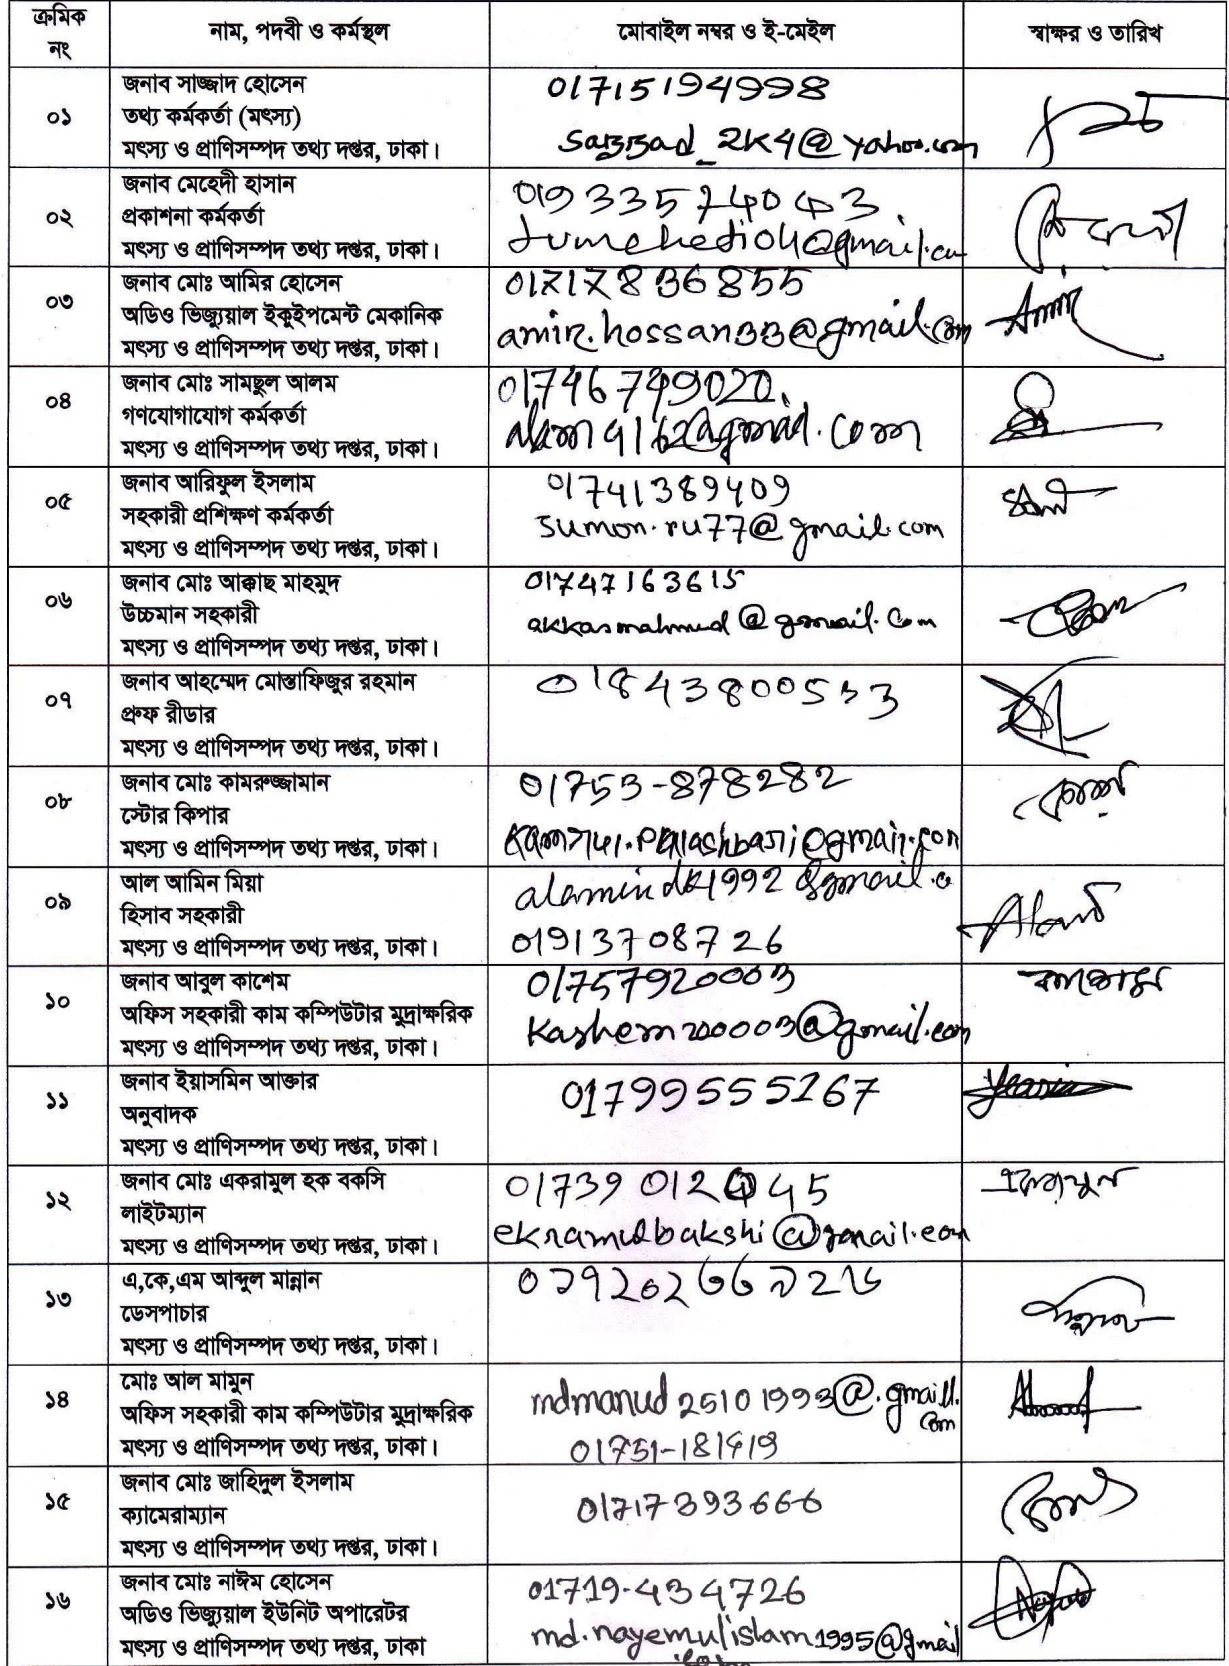 ক্রমিক
নং
নাম, পদবী ও কর্মস্থল
মোবাইল নম্বর ও ই-মেইল
স্বাক্ষর ও তারিখ
০১
জনাব সাজ্জাদ হোসেন
তথ্য কর্মকর্তা (মৎস্য)
মৎস্য ও প্রাণিসম্পদ তথ্য দপ্তর, ঢাকা।
01715194998
sazzad_2k4@yahoo.com
০২
জনাব মেহেদী হাসান
প্রকাশনা কর্মকর্তা
মৎস্য ও প্রাণিসম্পদ তথ্য দপ্তর, ঢাকা।
01933574043
০৩
জনাব মোঃ আমির হোসেন
অডিও ভিজ্যুয়াল ইকুইপমেন্ট মেকানিক
মৎস্য ও প্রাণিসম্পদ তথ্য দপ্তর, ঢাকা।
01717836855
amir.hossan33@gmail.com
Amir
০৪
জনাব মোঃ সামছুল আলম
গণযোগাযোগ কর্মকর্তা
মৎস্য ও প্রাণিসম্পদ তথ্য দপ্তর, ঢাকা।
01746749020
alam4162@gmail.com
০৫
জনাব আরিফুল ইসলাম
সহকারী প্রশিক্ষণ কর্মকর্তা
মৎস্য ও প্রাণিসম্পদ তথ্য দপ্তর, ঢাকা।
01741389409
sumon.ru77@gmail.com
০৬
জনাব মোঃ আক্কাছ মাহমুদ
উচ্চমান সহকারী
মৎস্য ও প্রাণিসম্পদ তথ্য দপ্তর, ঢাকা।
01747163615
akkasmahmud@gmail.com
০৭
জনাব আহম্মেদ মোস্তাফিজুর রহমান
প্রুফ রীডার
মৎস্য ও প্রাণিসম্পদ তথ্য দপ্তর, ঢাকা।
01843800533
০৮
জনাব মোঃ কামরুজ্জামান
স্টোর কিপার
মৎস্য ও প্রাণিসম্পদ তথ্য দপ্তর, ঢাকা।
01753-878282
kamrul.palashbari@gmail.com
০৯
আল আমিন মিয়া
হিসাব সহকারী
মৎস্য ও প্রাণিসম্পদ তথ্য দপ্তর, ঢাকা।
01913708726
১০
জনাব আবুল কাশেম
অফিস সহকারী কাম কম্পিউটার মুদ্রাক্ষরিক
মৎস্য ও প্রাণিসম্পদ তথ্য দপ্তর, ঢাকা।
01757920003
kashem20003@gmail.com
১১
জনাব ইয়াসমিন আক্তার
অনুবাদক
মৎস্য ও প্রাণিসম্পদ তথ্য দপ্তর, ঢাকা।
01799555267
১২
জনাব মোঃ একরামুল হক বকসি
লাইটম্যান
মৎস্য ও প্রাণিসম্পদ তথ্য দপ্তর, ঢাকা।
01739012045
ekramulbakshi@gmail.com
একরামুল
১৩
এ,কে,এম আব্দুল মান্নান
ডেসপাচার
মৎস্য ও প্রাণিসম্পদ তথ্য দপ্তর, ঢাকা।
১৪
মোঃ আল মামুন
অফিস সহকারী কাম কম্পিউটার মুদ্রাক্ষরিক
মৎস্য ও প্রাণিসম্পদ তথ্য দপ্তর, ঢাকা।
mdmanud25101993@.gmaill.
com
01751-181419
১৫
জনাব মোঃ জাহিদুল ইসলাম
ক্যামেরাম্যান
মৎস্য ও প্রাণিসম্পদ তথ্য দপ্তর, ঢাকা।
01717393666
১৬
জনাব মোঃ নাঈম হোসেন
অডিও ভিজ্যুয়াল ইউনিট অপারেটর
মৎস্য ও প্রাণিসম্পদ তথ্য দপ্তর, ঢাকা
01719-434726
md.nayemulislam1995@gmail